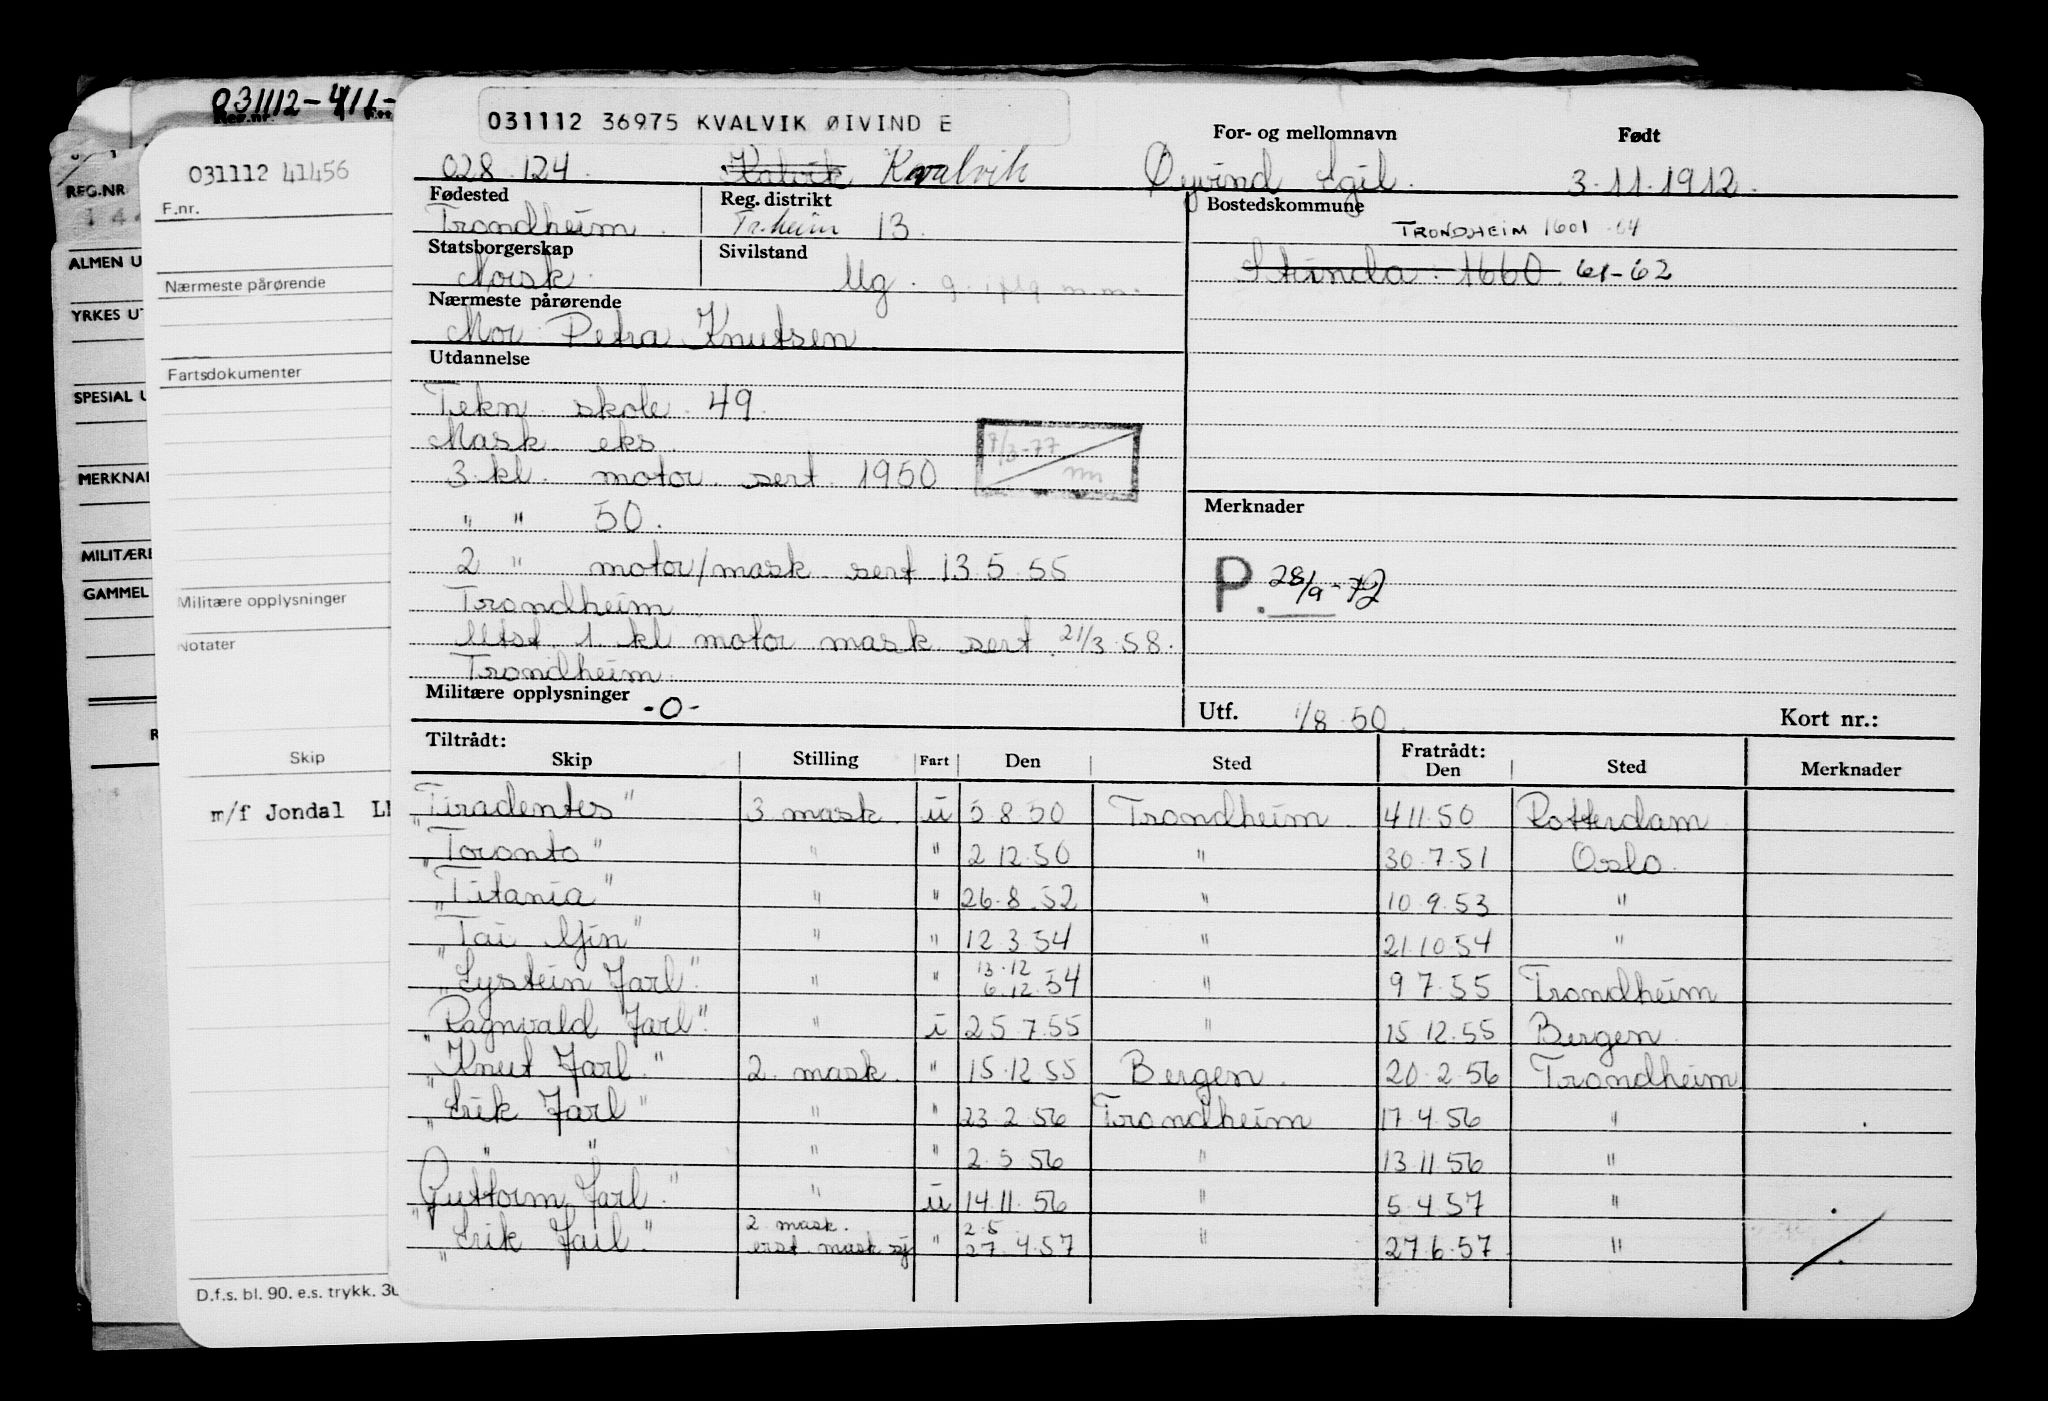 031112-411-
Reg.nr.
031112 41456
F.nr.
Nærmeste pårørende
Fartsdokumenter
Militære opplysninger
Notater
Skip
m/f Jondal
D.f.s. bl. 90. e.s. trykk.
REG.NR
ALMEN U
YRKES UT
SPESIAL U
MERKNA
MILITÆRE
GAMMEL
031112 36975 KVALVIK ØIVIND E
For- og mellomnavn Født
028.124. Kvalvik Øyvind Egil. 3.11.1912.
Fødested Reg. distrikt Bostedskommune
Trondheim. Tr.heim 13. TRONDHEIM 1601
Statsborgerskap Sivilstand
Norsk. Ug. Strinda. 1660. 61-62
Nærmeste pårørende
Mor Petra Knutsen
Utdannelse
Tekn. skole. 49.
Mask. eks.
9/3-77
3 kl. motor. sert. 1950
" " 50.
2 " motor/mask. sert 13.5.55
Trondheim
Utst. 1. kl motor mask sert. 21/3.58.
Trondheim.
Merknader
P. 28/9-72
Militære opplysninger -0-
Utf. 1/8.50. Kort nr.:
Tiltrådt: Fratrådt:
Skip Stilling Fart Den Sted Den Sted Merknader
"Tiradentes" 3 mask. u 5.8.50 Trondheim. 4.11.50 Rotterdam
"Toronto" " " 2.12.50 " 30.7.51 Oslo.
"Titania" " " 26.8.52 " 10.9.53 "
"Tai Yin" " " 12.3.54 " 21.10.54 "
"Eystein Jarl." " " 13.12 6.12.54 " 9.7.55 Trondheim
"Ragnvald Jarl". " i 25.7.55 " 15.12.55 Bergen.
"Knut Jarl." 2. mask. " 15.12.55 Bergen. 20.2.56 Trondheim
"Erik Jarl" " " 23.2.56 Trondheim 17.4.56 "
" " " " 2.5.56 " 13.11.56 "
"Guttorm Jarl." " u 14.11.56 " 5.4.57 "
"Erik Jarl." 2 mask. erst. mask sj " 2.5 27.4.57 " 27.6.57 "